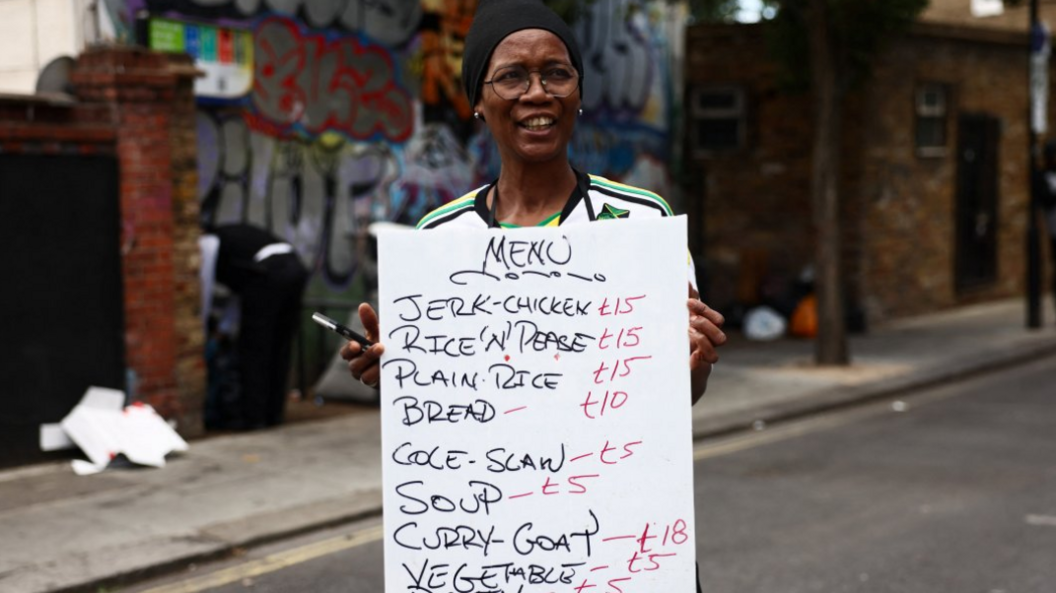 MENU
JERK-CHICKEN £15
RICE 'N' PEASE £15
PLAIN-RICE £15
BREAD - £10
COLE-SLAW - £5
SOUP - £5
CURRY-GOAT - £18
VEGETABLE - £5
£5